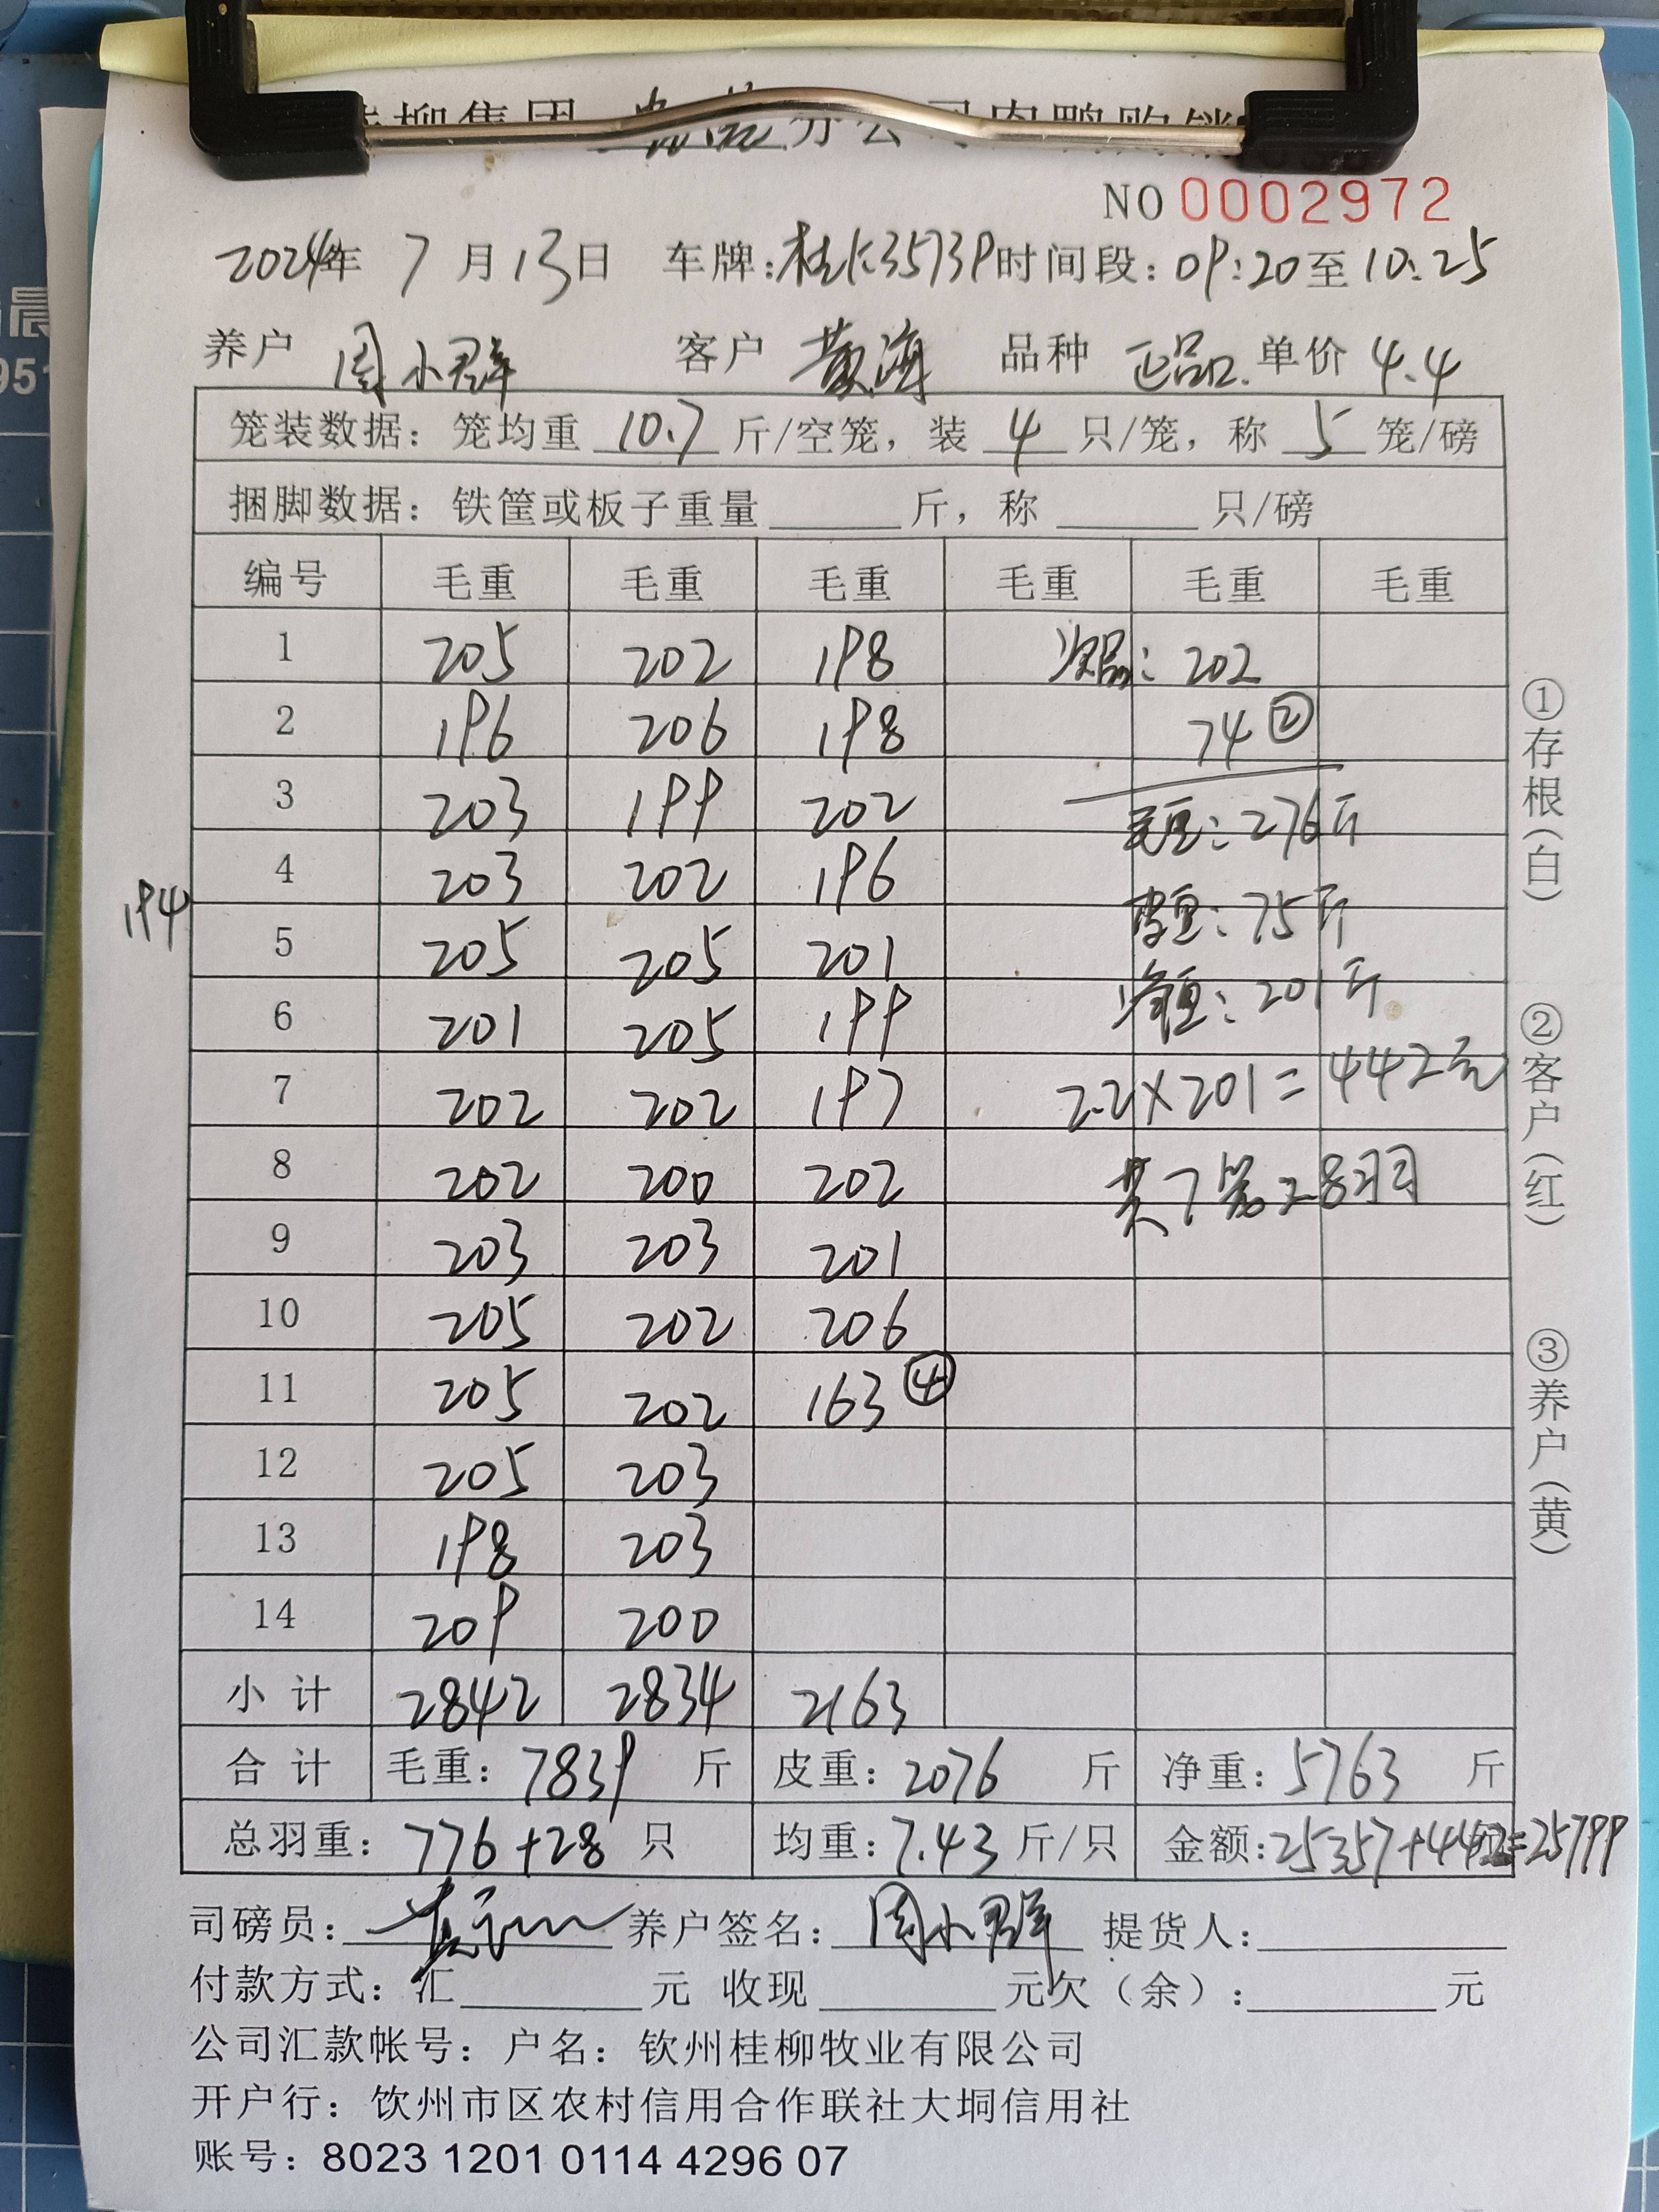 桂柳集团 分公司肉鸭购销
NO 0002972
2024年 7 月 13 日 车牌:桂K3573P 时间段: 09:20 至 10:25
养户 周小群 客户 黄海 品种 正品 单价 4.4
笼装数据: 笼均重 10.7 斤/空笼, 装 4 只/笼, 称 5 笼/磅
捆脚数据: 铁筐或板子重量 斤, 称 只/磅
编号 毛重 毛重 毛重 毛重 毛重 毛重
1 205 202 198 次品: 202
2 196 206 198 74 ②
3 203 199 202 毛重: 276斤
4 203 202 196
194
皮重: 75斤
5 205 205 201
净重: 201斤
6 201 205 199
7 202 202 197 2.2×201=442元
8 202 200 202 共7笼28羽
9 203 203 201
10 205 202 206
11 205 202 163 ④
12 205 203
13 198 203
14 209 200
小 计 2842 2834 2163
合 计 毛重: 7839 斤 皮重: 2076 斤 净重: 5763 斤
总羽重: 776+28 只 均重: 7.43 斤/只 金额: 25357+442=25799
司磅员: 养户签名: 周小群 提货人:
付款方式: 汇 元 收现 元欠(余): 元
公司汇款帐号: 户名: 钦州桂柳牧业有限公司
开户行: 饮州市区农村信用合作联社大垌信用社
账号: 8023 1201 0114 4296 07
①存根(白)
②客户(红)
③养户(黄)
晨
951